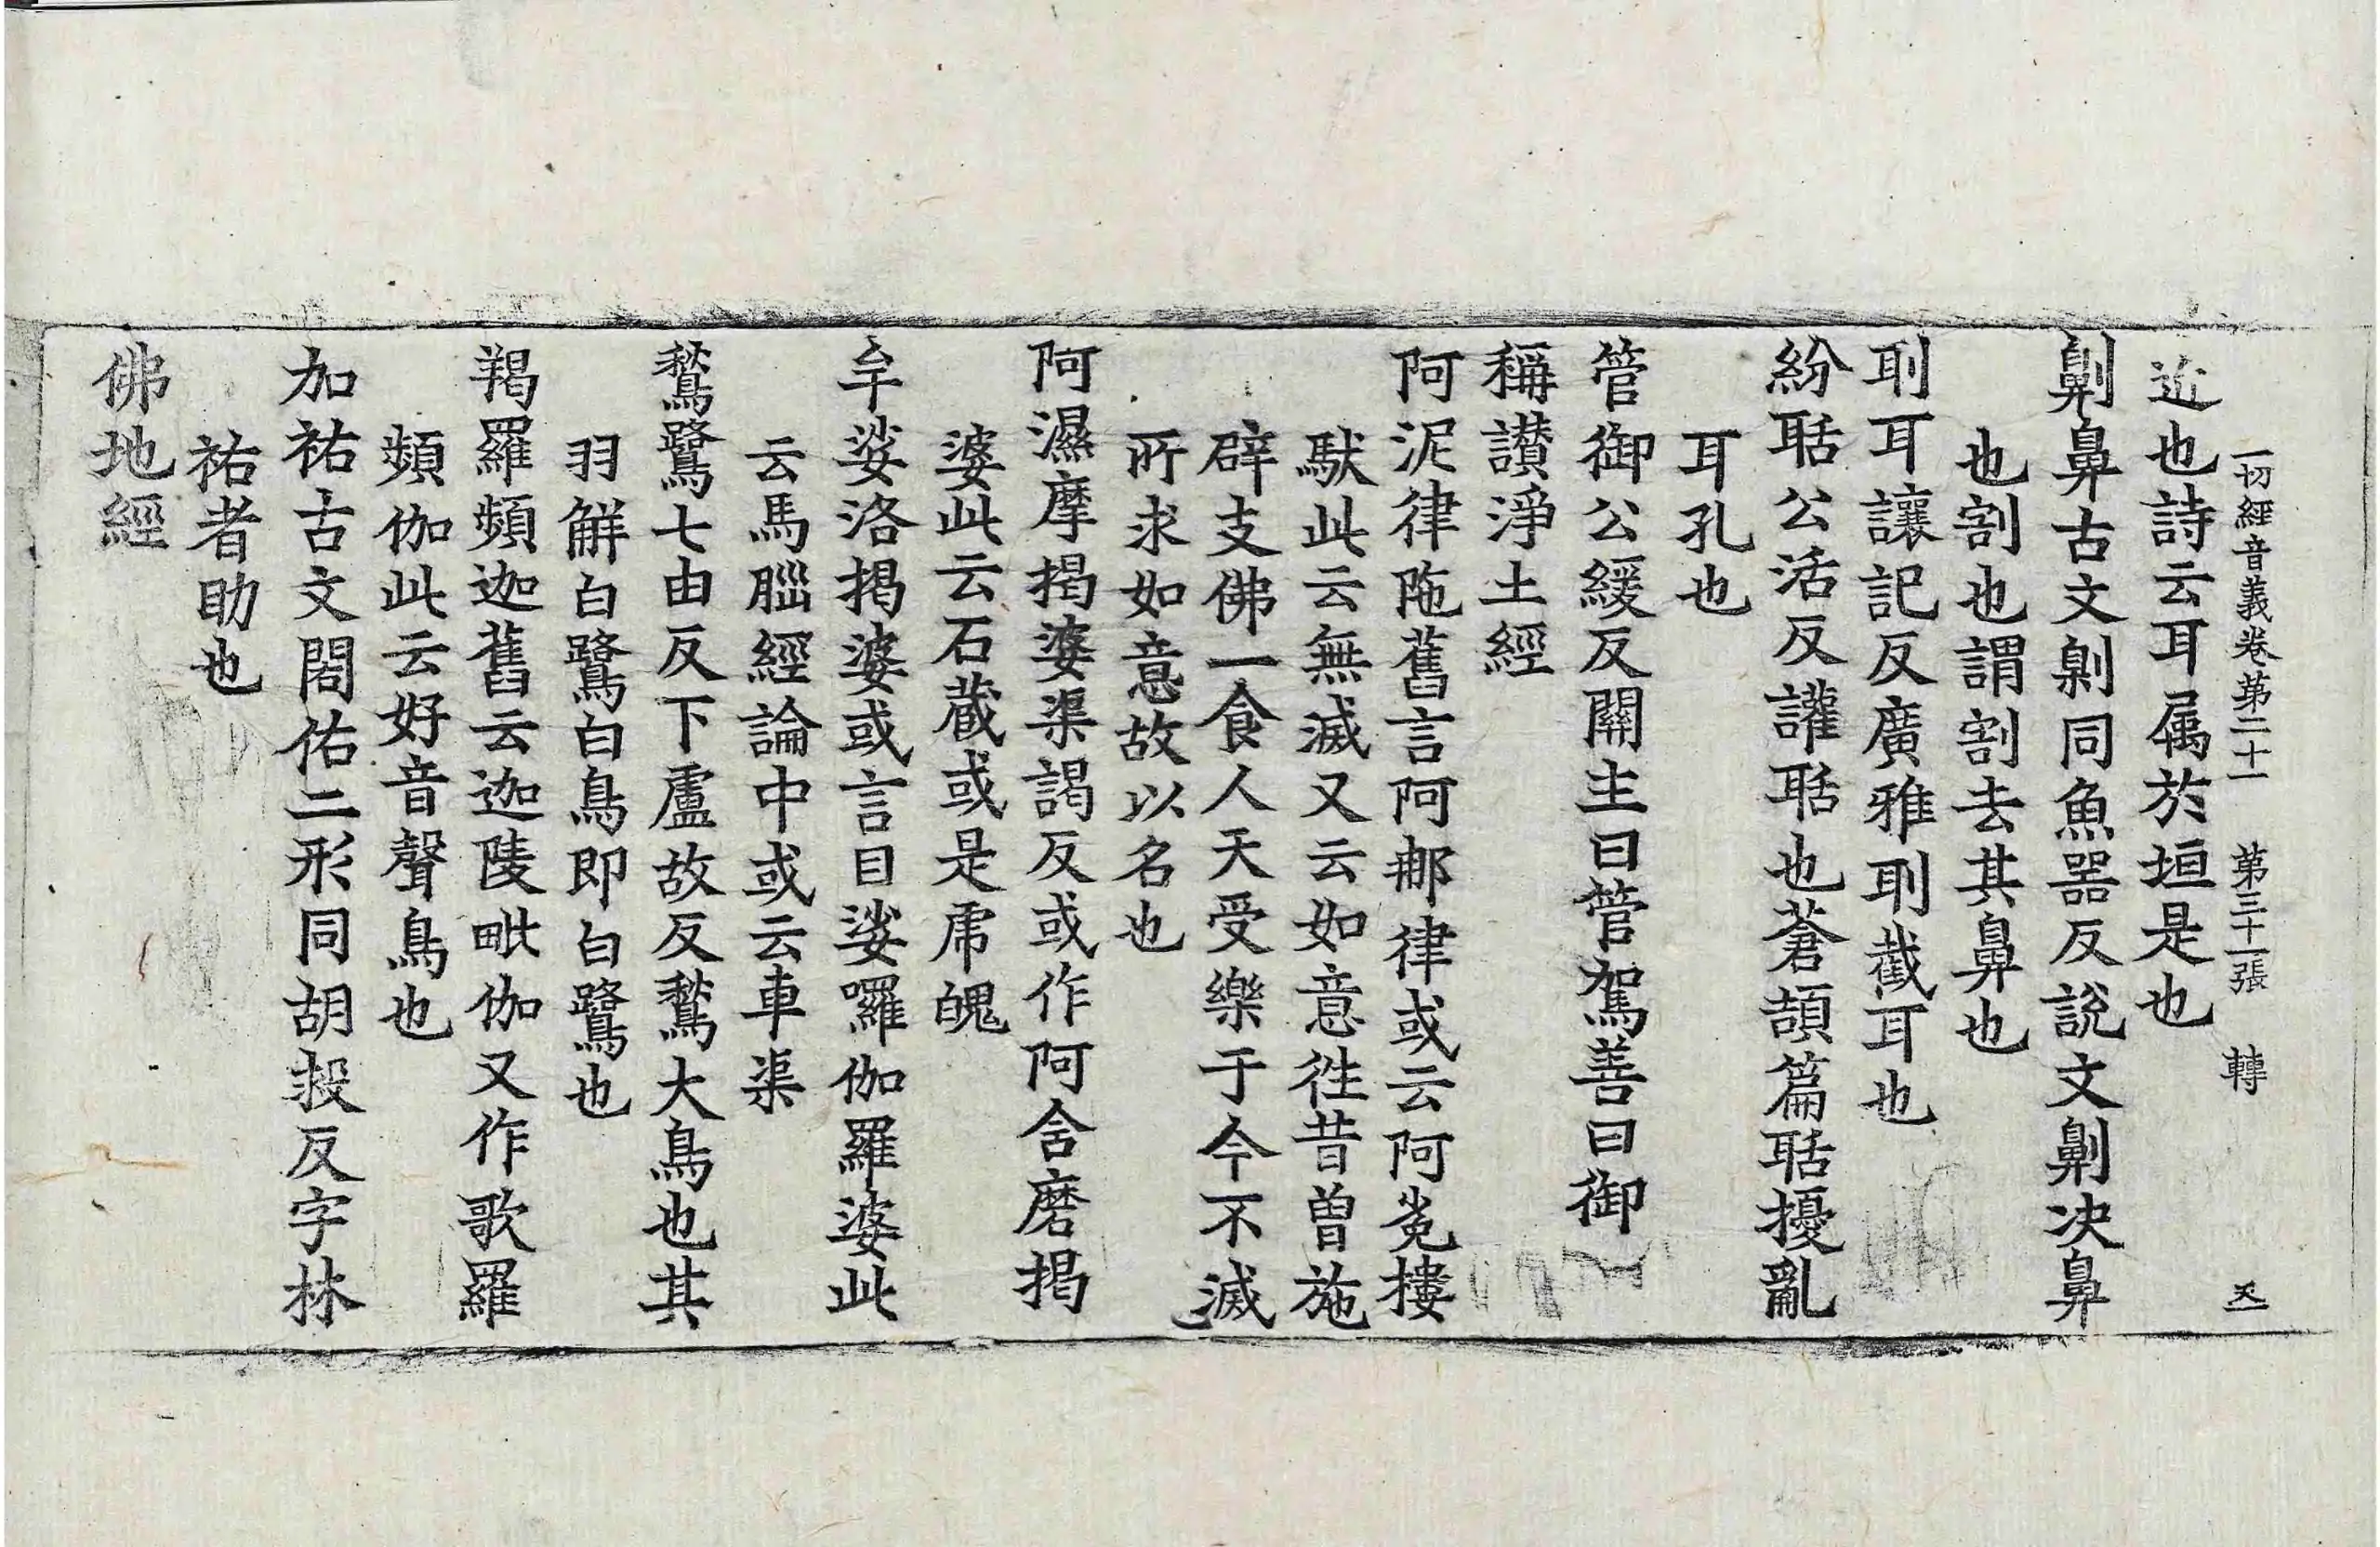 一切經音義卷第二十一　第三十一張　轉
近也詩云耳属於垣是也
劓鼻古文劓同魚器反說文劓决鼻
也割也謂割去其鼻也
刵耳讓記反廣雅刵截耳也
紛聒公活反讙聒也蒼頡篇聒擾亂
耳孔也
管御公緩反關主曰管駕善曰御
稱讃淨土經
阿泥律陁舊言阿那律或云阿㝹摟
馱此云無滅又云如意徃昔曽施
辟支佛一食人天受樂于今不滅
所求如意故以名也
阿濕摩揭婆渠謁反或作阿舍磨揭
婆此云石蔵或是虎魄
牟娑洛揭婆或言目娑囉伽羅婆此
云馬腦經論中或云車渠
鶖鷺七由反下盧故反鶖大鳥也其
羽鮮白鷺白鳥即白鷺也
羯羅頻迦舊云迦陵毗伽又作歌羅
頻伽此云好音聲鳥也
加祐古文閤佑二形同胡救反字林
祐者助也
佛地經